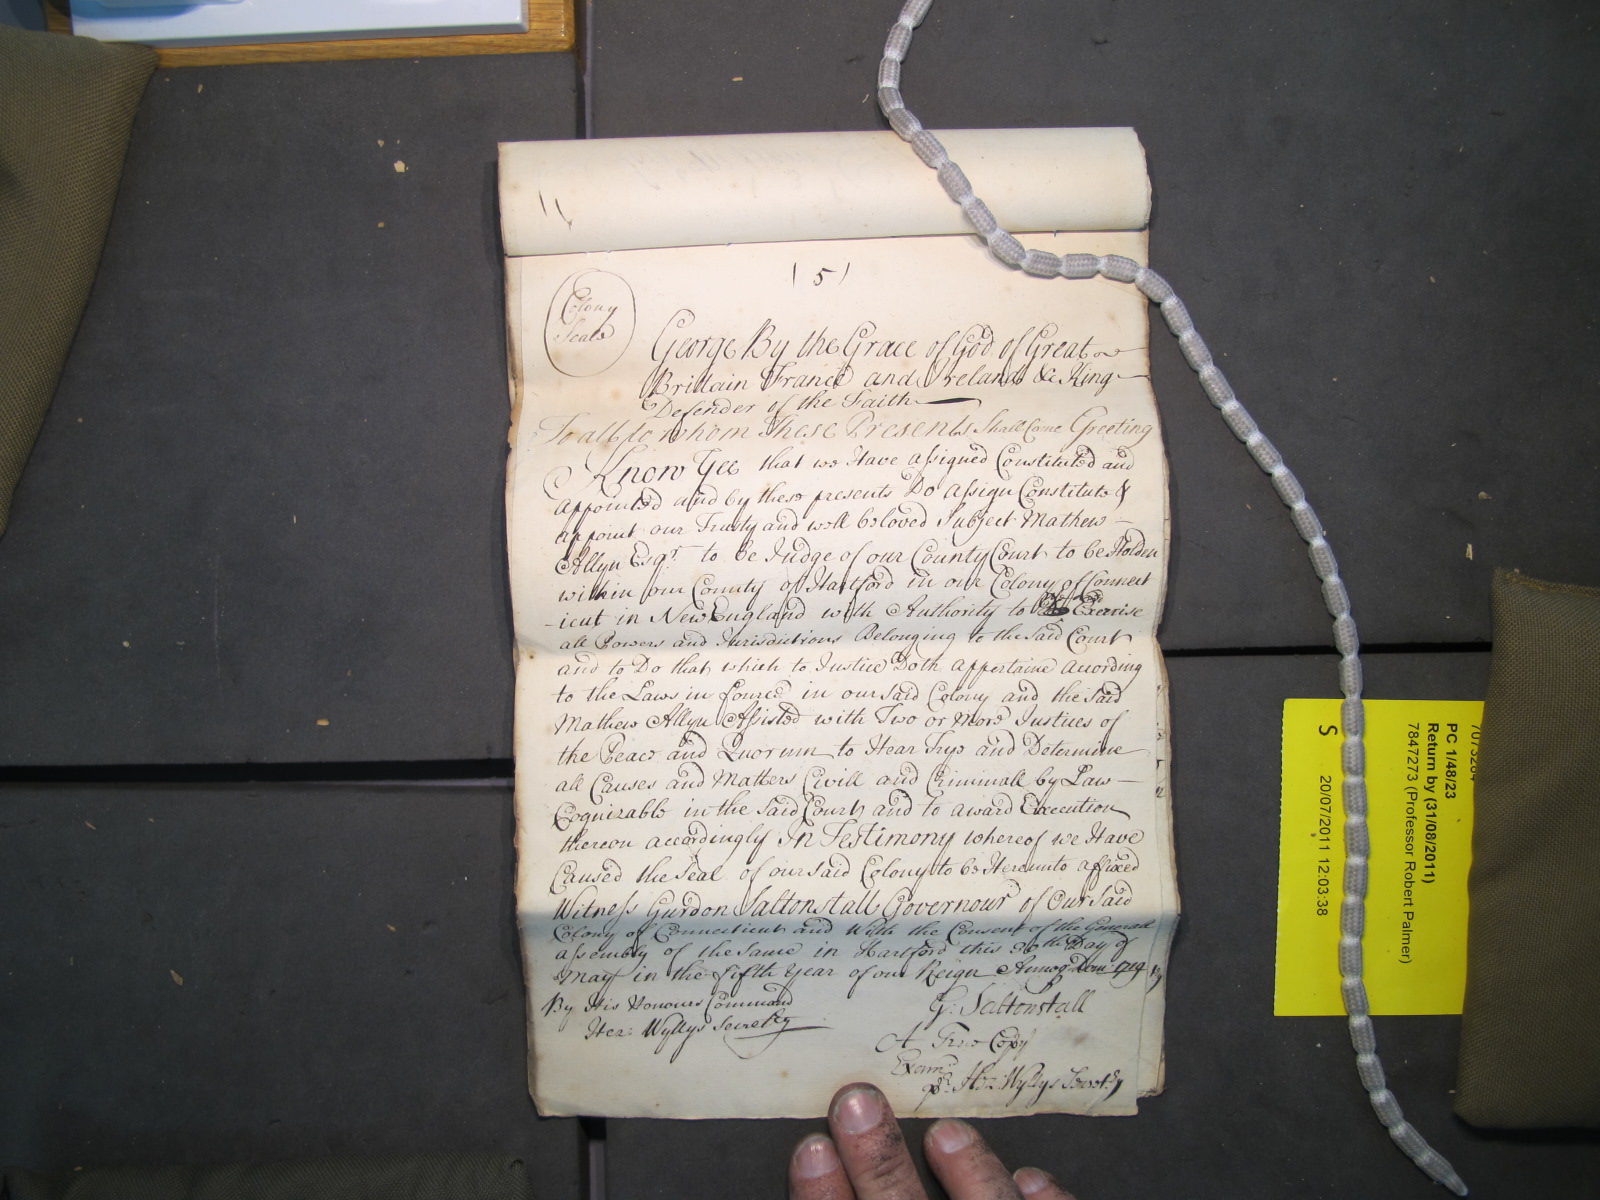 (5)
Colony
Seale
George By the Grace of God of Great
Brittain France and Ireland &c King
Defender of the Faith
To all to whom These Presents Shall Come Greeting
Know Yee that we Have assigned Constituted and
appointed and by these presents Do assign Constitute &
appoint our Trusty and well beloved Subject Mathew
Allyn Esqr to be Judge of our County Court to be Holden
within our County of Hartford in our Colony of Connect
-icut in New England with Authority to Exercise
all Powers and Jurisdictions Belonging to the said Court
and to Do that which to Justice Doth appertaine according
to the Laws in fource in our said Colony and the said
Mathew Allyn Assisted with Two or More Justices of
the Peace and Quorum to Hear Trye and Determine
all Causes and Matters Civill and Criminall by Law
Cognizable in the said Court and to award Execution
thereon accordingly In Testimony whereof we Have
Caused the Seal of our said Colony to be Hereunto affixed
Witness Gurdon Saltonstall Governour of Our said
Colony of Connecticut and With the Consent of the Generall
assembly of the same in Hartford this 20th Day of
May in the fifth Year of our Reign Annoq Dom: 1719
By His Honours Command
Hez: Wyllys Secretry
G: Saltonstall
A True Copy
Examd
pr Hez: Wyllys Secretry
PC 1/48/23
Return by (31/08/2011)
7847273 (Professor Robert Palmer)
S
20/07/2011 12:03:38